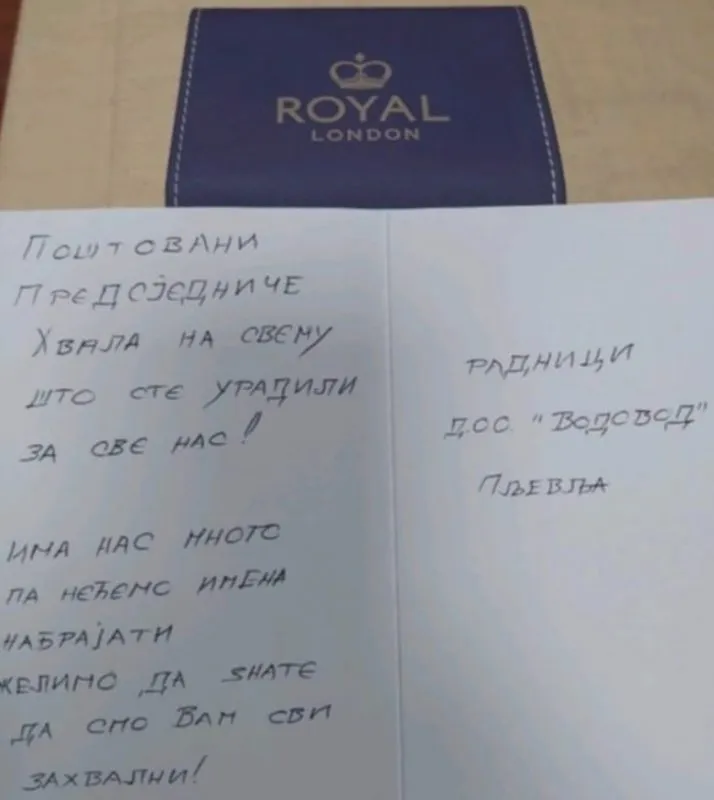 ROYAL
LONDON
ПОШТОВАНИ
ПРЕДСЈЕДНИЧЕ
ХВАЛА НА СВЕМУ
ШТО СТЕ УРАДИЛИ
ЗА СВЕ НАС!
ИМА НАС МНОГО
ПА НЕЋЕМО ИМЕНА
НАБРАЈАТИ
ЖЕЛИМО ДА ЗНАТЕ
ДА СМО ВАМ СВИ
ЗАХВАЛНИ!
РАДНИЦИ
Д.О.О. "ВОДОВОД"
ПЉЕВЉА